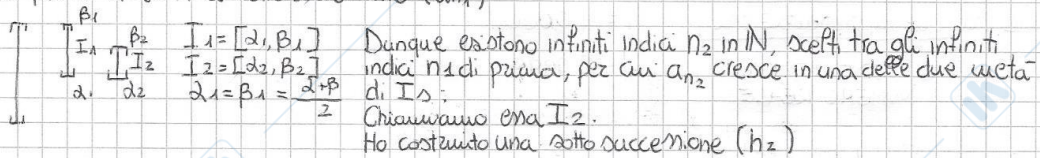 β1
I1 β2 I1=[α1,β1] Dunque esistono infiniti indici n2 in IN, scelti tra gli infiniti
I2 I2=[α2,β2] indici n1 di prima, per cui an2 cresce in una delle due metà
α1 α2 α1=β1=α+β/2 di I1:
Chiamiamo essa I2.
Ho costruito una sotto successione (h2)